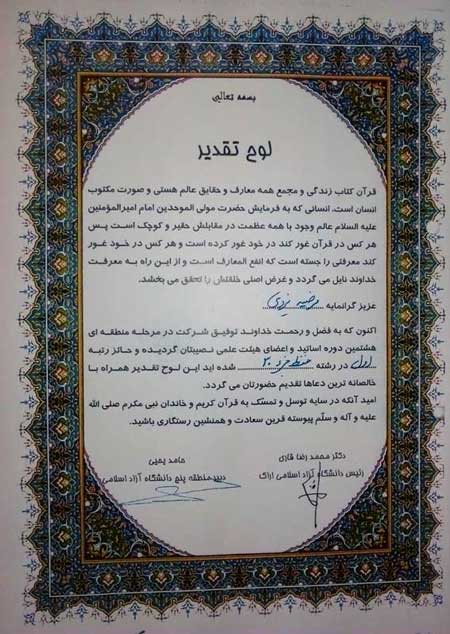 بسمه تعالی
لوح تقدیر
قرآن کتاب زندگی و مجمع همه معارف و حقایق عالم هستی و صورت مکتوب
انسان است. انسانی که به فرمایش حضرت مولی الموحدین امام امیرالمؤمنین
علیه السلام عالم وجود با همه عظمت در مقابلش حقیر و کوچک است پس
هر کس در قرآن غور کند در خود غور کرده است و هر کس در خود غور
کند معرفتی را جسته است که انفع المعارف است و از این راه به معرفت
خداوند نایل می گردد و غرض اصلی خلقتش را تحقق می بخشد.
عزیز گرانمایه مرضیه یزدی
اکنون که به فضل و رحمت خداوند توفیق شرکت در مرحله منطقه ای
هشتمین دوره اساتید و اعضای هیئت علمی نصیبتان گردیده و حائز رتبه
اول در رشته حفظ جزء ۳۰ شده اید این لوح تقدیر همراه با
خالصانه ترین دعاها تقدیم حضورتان می گردد.
امید آنکه در سایه توسل و تمسک به قرآن کریم و خاندان نبی مکرم صلی الله
علیه و آله و سلّم پیوسته قرین سعادت و همنشین رستگاری باشید.
دکتر محمد رضا قاری
رئیس دانشگاه آزاد اسلامی اراک
حامد یحیی
دبیر منطقه پنج دانشگاه آزاد اسلامی